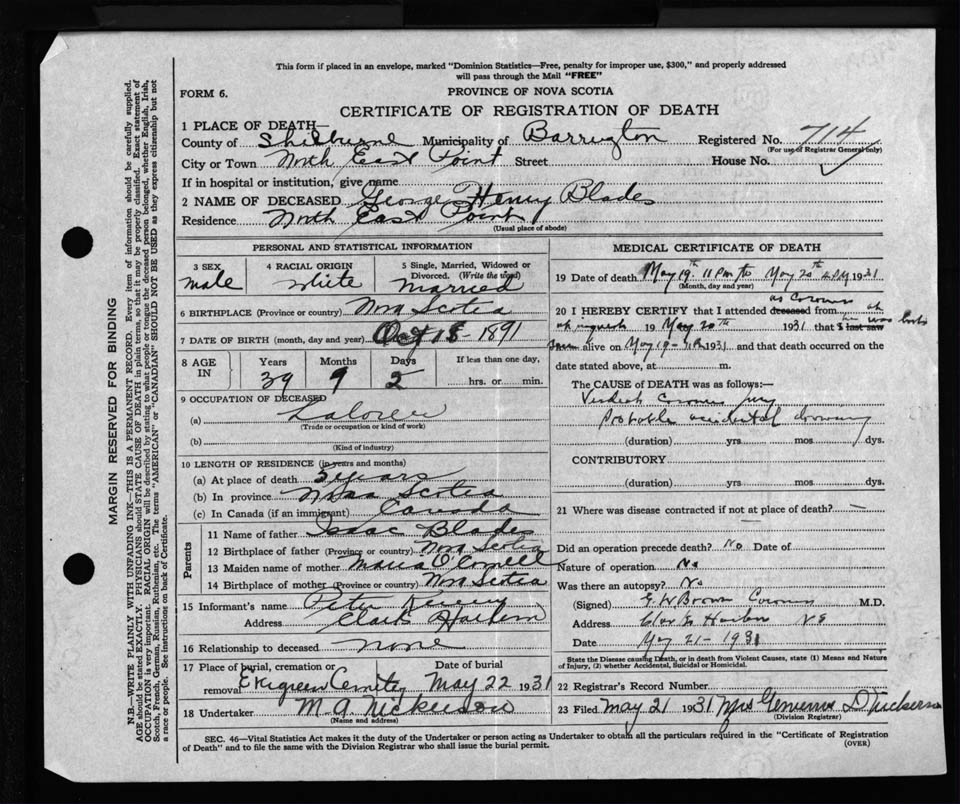 This form if placed in an envelope, marked "Dominion Statistics—Free, penalty for improper use, $300," and properly addressed
will pass through the Mail "FREE"
FORM 6.
PROVINCE OF NOVA SCOTIA
CERTIFICATE OF REGISTRATION OF DEATH
1 PLACE OF DEATH—
County of Shelburne Municipality of Barrington Registered No. 714
(For use of Registrar General only)
City or Town North East Point Street House No.
If in hospital or institution, give name
2 NAME OF DECEASED George Henry Blades
Residence North East Point
(Usual place of abode)
PERSONAL AND STATISTICAL INFORMATION
3 SEX
male
4 RACIAL ORIGIN
white
5 Single, Married, Widowed or
Divorced. (Write the word)
married
6 BIRTHPLACE (Province or country) Nova Scotia
7 DATE OF BIRTH (month, day and year) Oct 18 - 1891
8 AGE IN
Years Months Days If less than one day,
39 9 2 hrs. or min.
9 OCCUPATION OF DECEASED
(a) Laborer
(Trade or occupation or kind of work)
(b)
(Kind of industry)
10 LENGTH OF RESIDENCE (in years and months)
(a) At place of death 5 years
(b) In province Nova Scotia
(c) In Canada (if an immigrant) Canada
Parents
11 Name of father Isaac Blades
12 Birthplace of father (Province or country) Nova Scotia
13 Maiden name of mother Maria O Connell
14 Birthplace of mother (Province or country) Nova Scotia
15 Informant's name Peter Kenney
Address Clark Harbor
16 Relationship to deceased none
17 Place of burial, cremation or Date of burial
removal Evergreen Cemetry May 22 1931
18 Undertaker M. A. Nickerson
(Name and address)
MEDICAL CERTIFICATE OF DEATH
19 Date of death May 19th 11 PM to May 20th 2 PM 1931
(Month, day and year)
20 I HEREBY CERTIFY that I attended deceased from as Coroner at
19 May 20th 1931 that I last saw he was
alive on May 19 - 1931 and that death occurred on the
date stated above, at m.
The CAUSE of DEATH was as follows:—
Verdict Coroners jury
Probable accidental drowning
(duration) yrs mos dys.
CONTRIBUTORY
(duration) yrs. mos dys.
21 Where was disease contracted if not at place of death? —
Did an operation precede death? No Date of
Nature of operation No
Was there an autopsy? No
(Signed) E. W. Brown Coroner M.D.
Address Clark's Harbor N S
Date May 21 - 1931
State the Disease causing Death, or in death from Violent Causes, state (1) Means and Nature
of Injury, (2) whether Accidental, Suicidal or Homicidal.
22 Registrar's Record Number
23 Filed May 21 1931 Mrs D Nickerson
(Division Registrar)
SEC. 46—Vital Statistics Act makes it the duty of the Undertaker or person acting as Undertaker to obtain all the particulars required in the "Certificate of Registration
of Death" and to file the same with the Division Registrar who shall issue the burial permit. (OVER)
MARGIN RESERVED FOR BINDING
N.B.—WRITE PLAINLY WITH UNFADING INK—THIS IS A PERMANENT RECORD. Every item of information should be carefully supplied.
AGE should be stated EXACTLY. PHYSICIANS should STATE CAUSE OF DEATH in plain terms, so that it may be properly classified. Exact statement of
OCCUPATION is very important. RACIAL ORIGIN will be described by stating to what people or tongue the deceased person belonged, whether English, Irish,
Scotch, French, German, Russian, Ruthenian, etc. The terms "AMERICAN" or "CANADIAN" SHOULD NOT BE USED as they express citizenship but not
a race or people. See instructions on back of Certificate.